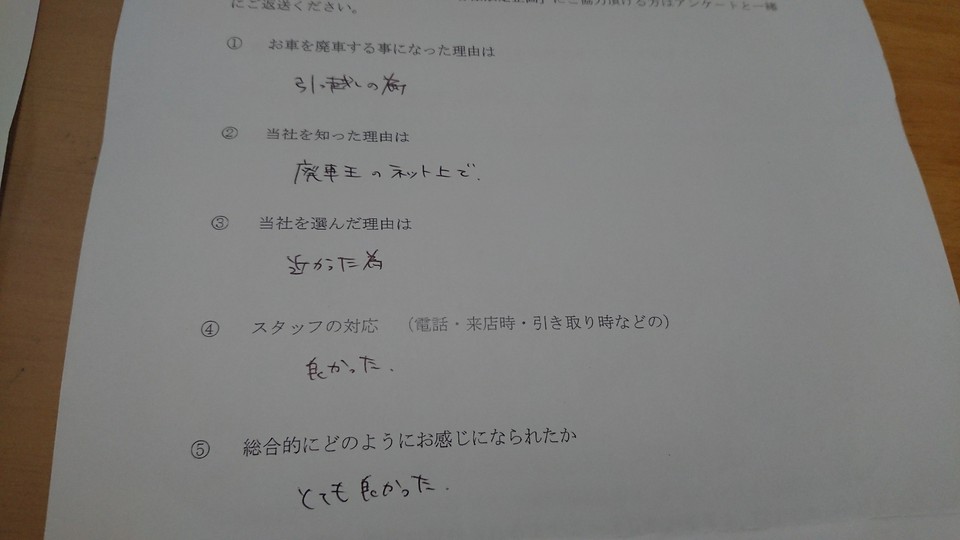 にご協力頂ける方はアンケートと一緒
にご返送ください。
① お車を廃車する事になった理由は
引っ越しの為
② 当社を知った理由は
廃車王のネット上で.
③ 当社を選んだ理由は
近かった為
④ スタッフの対応 (電話・来店時・引き取り時などの)
良かった.
⑤ 総合的にどのようにお感じになられたか
とても良かった.